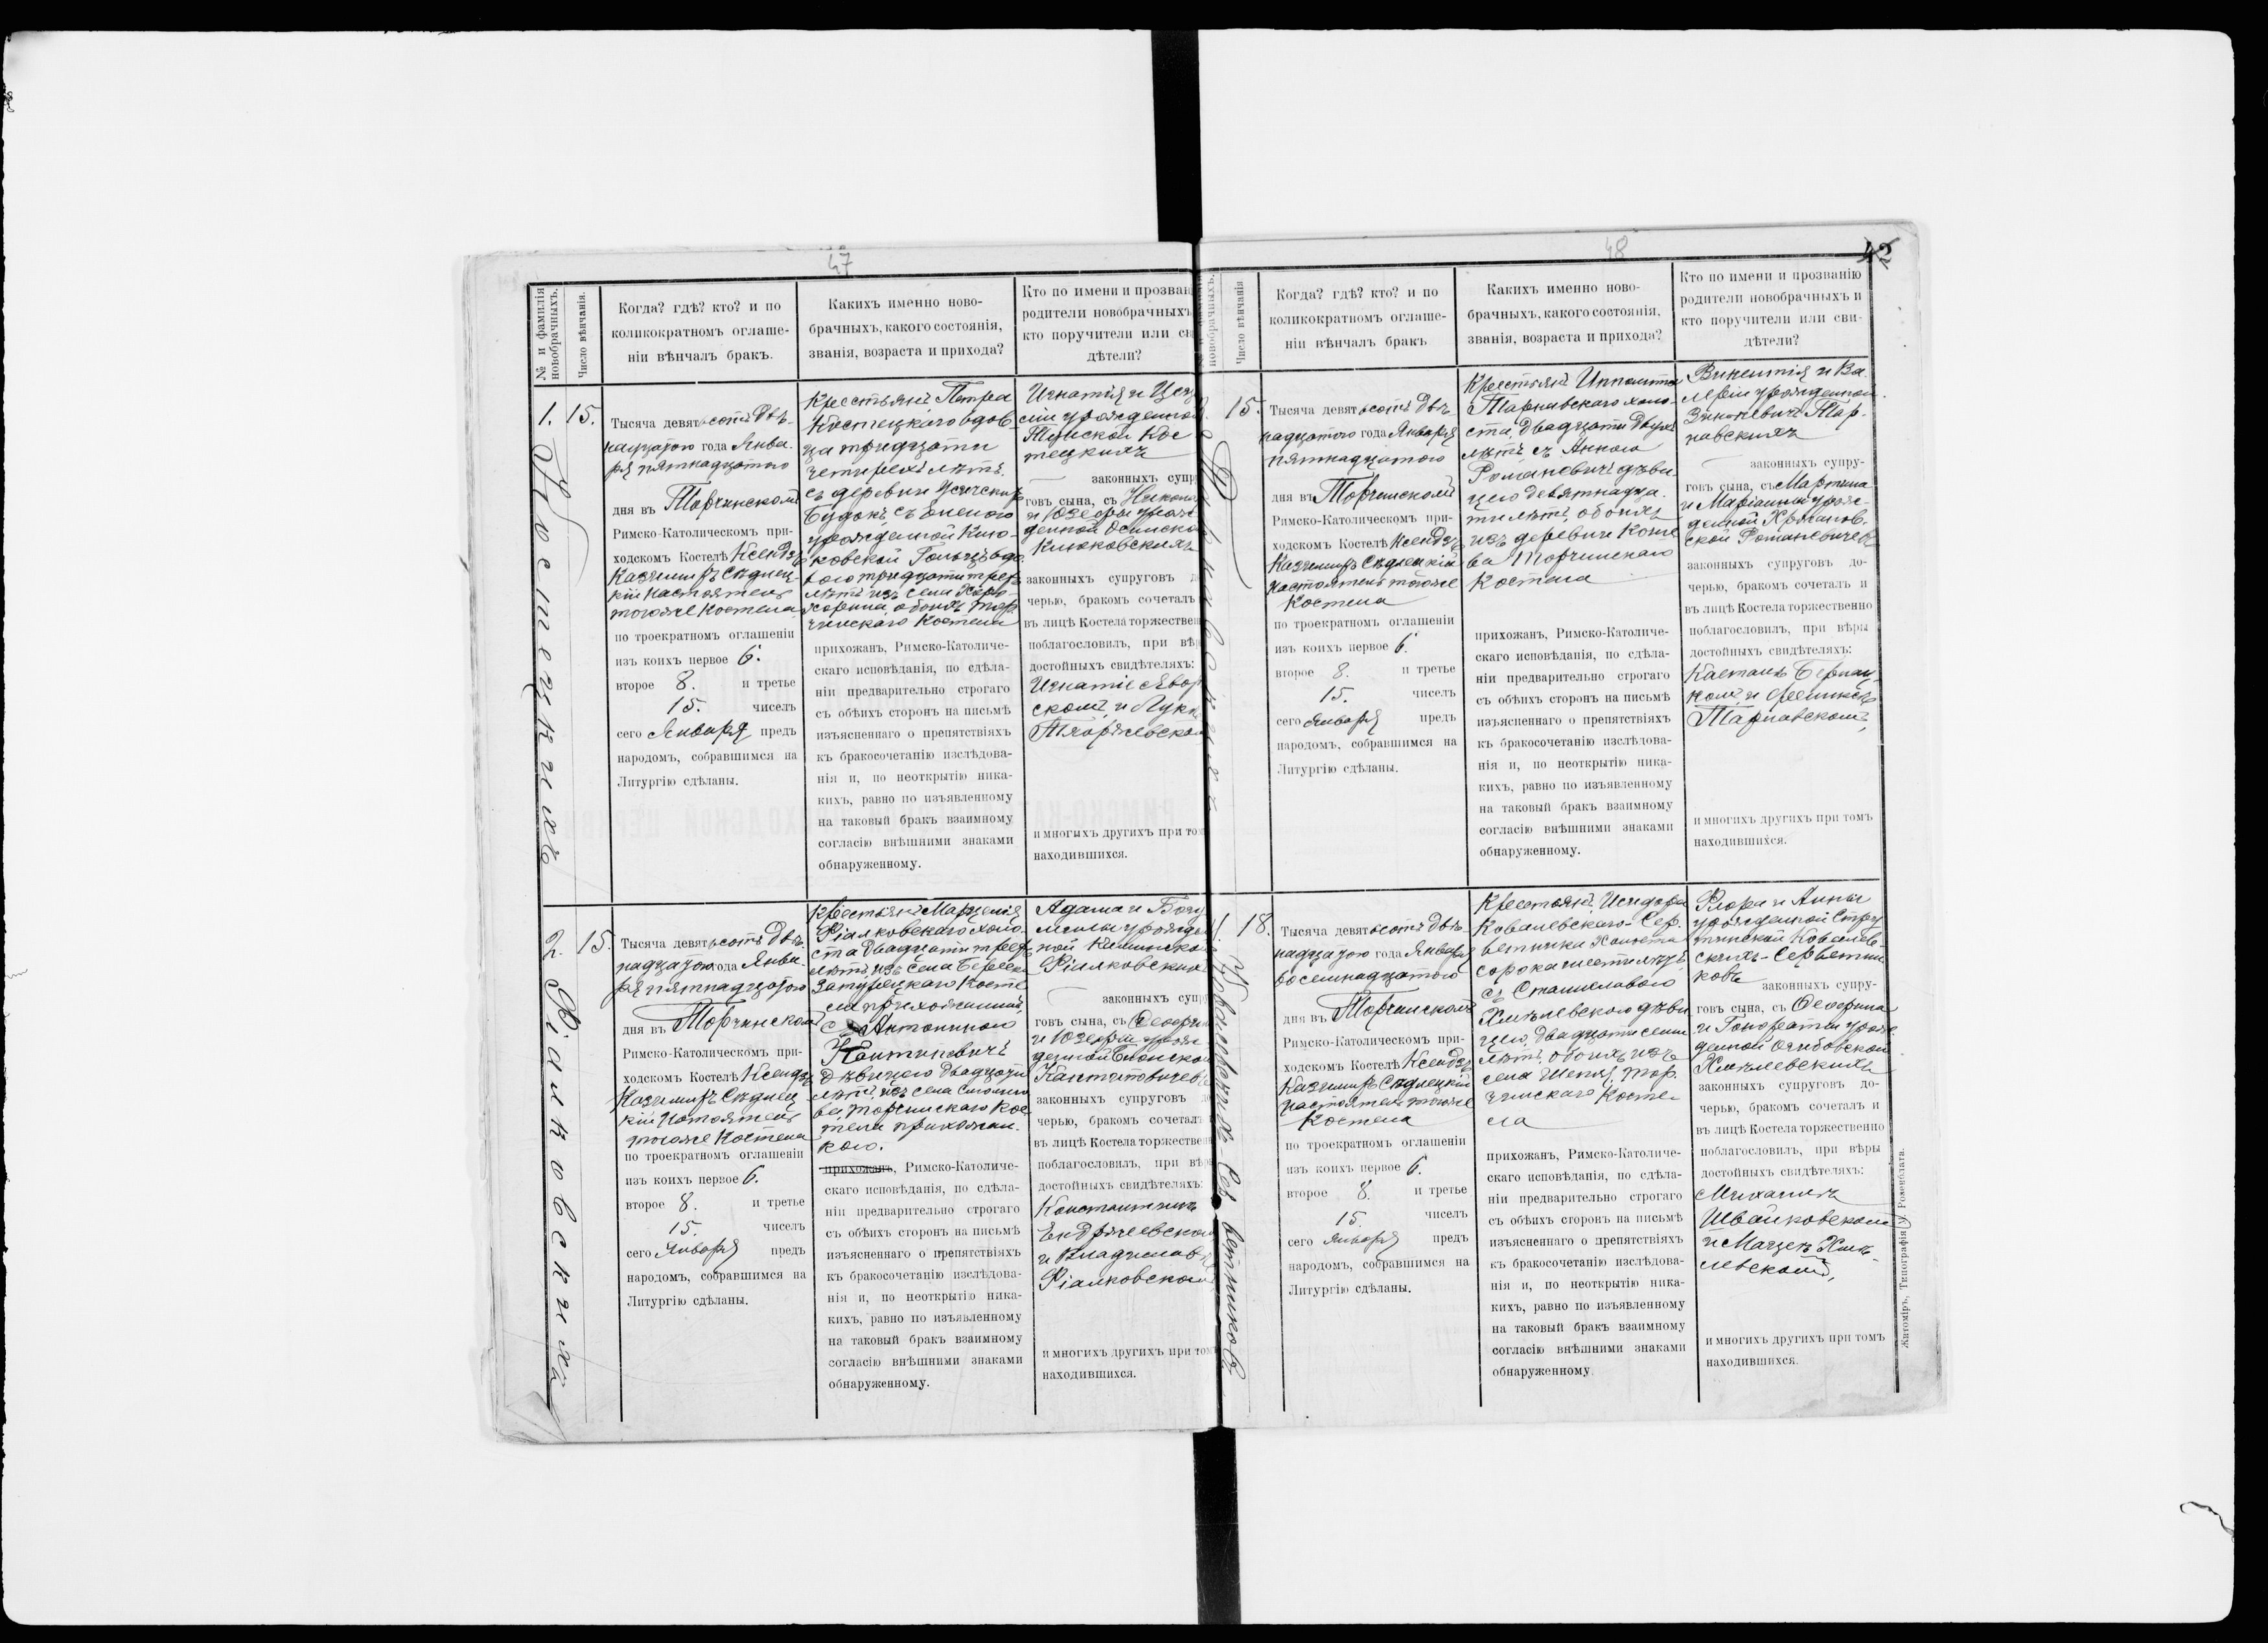 47
№ и фамилія
новобрачныхъ.
Число вѣнчанія.
Когда? гдѣ? кто? и по
коликократномъ оглаше-
ніи вѣнчалъ бракъ.
Какихъ именно ново-
брачныхъ, какого состоянія,
званія, возраста и прихода?
Кто по имени и прозван
родители новобрачныхъ
кто поручители или св
дѣтели?
1.
Костецкихъ
15.
Тысяча девятьсотъ двѣ-
надцатого года Янва-
ря пятнадцатого
дня въ Торчинскомъ
Римско-Католическомъ при-
ходскомъ Костелѣ Ксендзъ
Казимиръ Сѣдлец-
кій Настоятель
тогоже Костела
по троекратномъ оглашеніи
изъ коихъ первое 6.
второе 8. и третье
15. чиселъ
сего Января предъ
народомъ, собравшимся на
Литургію сдѣланы.
Крестьянъ Петра
Костецкаго вдов-
ца тридцати
четырехъ лѣтъ
съ деревни Усичскихъ
Будокъ, съ
урожденной Клю-
ковской вдо-
вою тридцати трехъ
лѣтъ изъ села
обоихъ Тор-
чинскаго Костела
прихожанъ, Римско-Католиче-
скаго исповѣданія, по сдѣла-
ніи предварительно строгаго
съ обѣихъ сторонъ на письмѣ
изъясненнаго о препятствіяхъ
къ бракосочетанію изслѣдова-
нія и, по неоткрытію ника-
кихъ, равно по изъявленному
на таковый бракъ взаимному
согласію внѣшними знаками
обнаруженному.
Игнатія и
урожденной
Кос
тецкихъ
законныхъ супр
говъ сына, съ
и Юзефы урож
денной
Клюковскихъ
законныхъ супруговъ
черью, бракомъ сочеталъ
въ лицѣ Костела торжествен
поблагословилъ, при вѣ
достойныхъ свидѣтеляхъ:
Игнатіе Явор
скомъ, и Лукѣ
и многихъ другихъ при то
находившихся.
2.
Фіалковскихъ
15.
Тысяча девятьсотъ двѣ-
надцатого года Янва-
ря пятнадцатого
дня въ Торчинскомъ
Римско-Католическомъ при-
ходскомъ Костелѣ Ксендзъ
Казимиръ Сѣдлец-
кій Настоятель
тогоже Костела
по троекратномъ оглашеніи
изъ коихъ первое 6.
второе 8. и третье
15. чиселъ
сего Января предъ
народомъ, собравшимся на
Литургію сдѣланы.
Крестьянъ Марцелія
Фіалковскаго холо-
ста двадцати трехъ
лѣтъ, изъ села
Затурецкаго Косте
ла прихожанина,
съ Антониною
Контиповичъ
дѣвицею двадцати
лѣтъ, изъ села
Торчинскаго Кос-
тела прихожан-
кою.
прихожанъ, Римско-Католиче-
скаго исповѣданія, по сдѣла-
ніи предварительно строгаго
съ обѣихъ сторонъ на письмѣ
изъясненнаго о препятствіяхъ
къ бракосочетанію изслѣдова-
нія и, по неоткрытію ника-
кихъ, равно по изъявленному
на таковый бракъ взаимному
согласію внѣшними знаками
обнаруженному.
Адама и Богу
милы урожден
ной
Фіалковскихъ
законныхъ супр
говъ сына, съ
и Юзефы урож
денной
законныхъ супруговъ
черью, бракомъ сочеталъ
въ лицѣ Костела торжествен
поблагословилъ, при вѣ
достойныхъ свидѣтеляхъ:
Константинѣ
и Владиславѣ
Фіалковскомъ
и многихъ другихъ при том
находившихся.
48
42
новобрачныхъ.
Число вѣнчанія
Когда? гдѣ? кто? и по
коликократномъ оглаше-
ніи вѣнчалъ бракъ
Какихъ именно ново-
брачныхъ, какого состоянія,
званія, возраста и прихода?
Кто по имени и прозванію
родители новобрачныхъ и
кто поручители или сви-
дѣтели?
15.
Тысяча девятьсотъ двѣ-
надцатого года Января
пятнадцатого
дня въ Торчинскомъ
Римско-Католическомъ при-
ходскомъ Костелѣ Ксендзъ
Казимиръ Сѣдлецкій
Настоятель тогоже
Костела
по троекратномъ оглашеніи
изъ коихъ первое 6.
второе 8. и третье
15. чиселъ
сего Января предъ
народомъ, собравшимся на
Литургію сдѣланы.
Крестьянъ Ипполита
Тарнавскаго холо-
ста, двадцати двухъ
лѣтъ, съ Анною
Романовичъ дѣви-
цею девятнадца-
ти лѣтъ, обоихъ
изъ деревни
Торчинскаго
Костела
прихожанъ, Римско-Католиче-
скаго исповѣданія, по сдѣла-
ніи предварительно строгаго
съ обѣихъ сторонъ на письмѣ
изъясненнаго о препятствіяхъ
къ бракосочетанію изслѣдова-
нія и, по неоткрытію ника-
кихъ, равно по изъявленному
на таковый бракъ взаимному
согласію внѣшними знаками
обнаруженному.
Викентія и Ва-
леріи урожденной
Тар-
навскихъ
законныхъ супру-
говъ сына, съ Мартина
и Маріанны урож-
денной
законныхъ супруговъ до-
черью, бракомъ сочеталъ и
въ лицѣ Костела торжественно
поблагословилъ, при вѣры
достойныхъ свидѣтеляхъ:
и Феликсѣ
Тарнавскомъ,
и многихъ другихъ при томъ
находившихся.
Ковалевскихъ-Серветниковъ
18.
Тысяча девятьсотъ двѣ-
надцатого года Января
восемнадцатого
дня въ Торчинскомъ
Римско-Католическомъ при-
ходскомъ Костелѣ Ксендзъ
Казимиръ Сѣдлецкій
настоятель тогоже
Костела
по троекратномъ оглашеніи
изъ коихъ первое 6.
второе 8. и третье
15. чиселъ
сего Января предъ
народомъ, собравшимся на
Литургію сдѣланы.
Крестьянъ Исидора
Ковалевскаго-Сер-
ветника холоста
сорока шести лѣтъ,
съ Станиславою
Хмѣлевскою дѣви
цею, двадцати семи
лѣтъ, обоихъ изъ
села Шепля, Тор-
чинскаго Косте-
ла
прихожанъ, Римско-Католиче-
скаго исповѣданія, по сдѣла-
ніи предварительно строгаго
съ обѣихъ сторонъ на письмѣ
изъясненнаго о препятствіяхъ
къ бракосочетанію изслѣдова-
нія и, по неоткрытію ника-
кихъ, равно по изъявленному
на таковый бракъ взаимному
согласію внѣшними знаками
обнаруженному.
Флора и Анны
урожденной Стру
Ковалев-
скихъ-Серветни
ковъ
законныхъ супру-
говъ сына, съ Феофила
и Гонораты урож-
денной
Хмѣлевскихъ
законныхъ супруговъ до-
черью, бракомъ сочеталъ и
въ лицѣ Костела торжественно
поблагословилъ, при вѣры
достойныхъ свидѣтеляхъ:
Михаилѣ
Швайковскомъ
и Мацеѣ Хмѣ-
левскомъ,
и многихъ другихъ при томъ
находившихся.
Житоміръ, Типографія У. Розенблата.